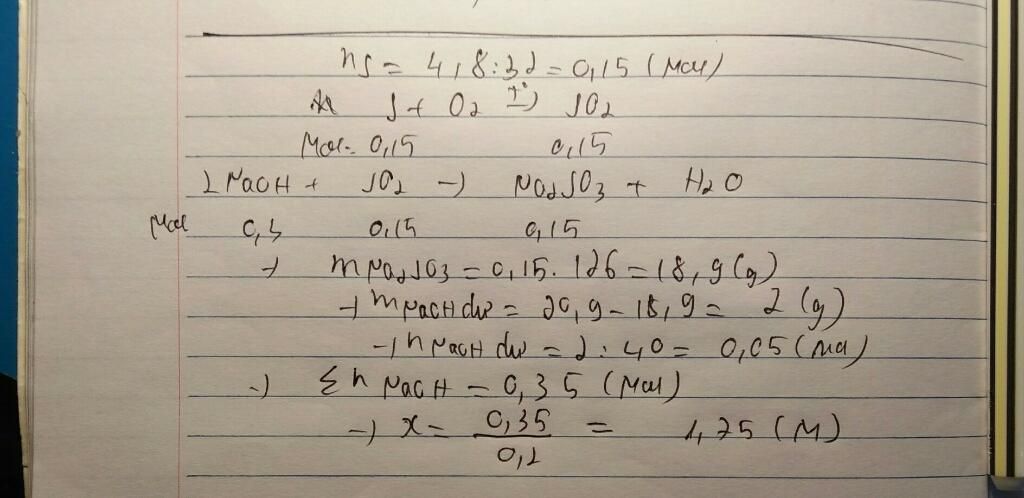 nS = 4,8:32 = 0,15 (mol)
S + O2 t°→ SO2
Mol: 0,15 0,15
2 NaOH + SO2 → Na2SO3 + H2O
Mol 0,3 0,15 0,15
→ mNa2SO3 = 0,15. 126 = 18,9 (g)
→ mNaOH dư = 20,9 - 18,9 = 2 (g)
→ nNaOH dư = 2 : 40 = 0,05 (mol)
→ Σn NaOH = 0,35 (mol)
→ x = 0,35 / 0,2 = 1,75 (M)